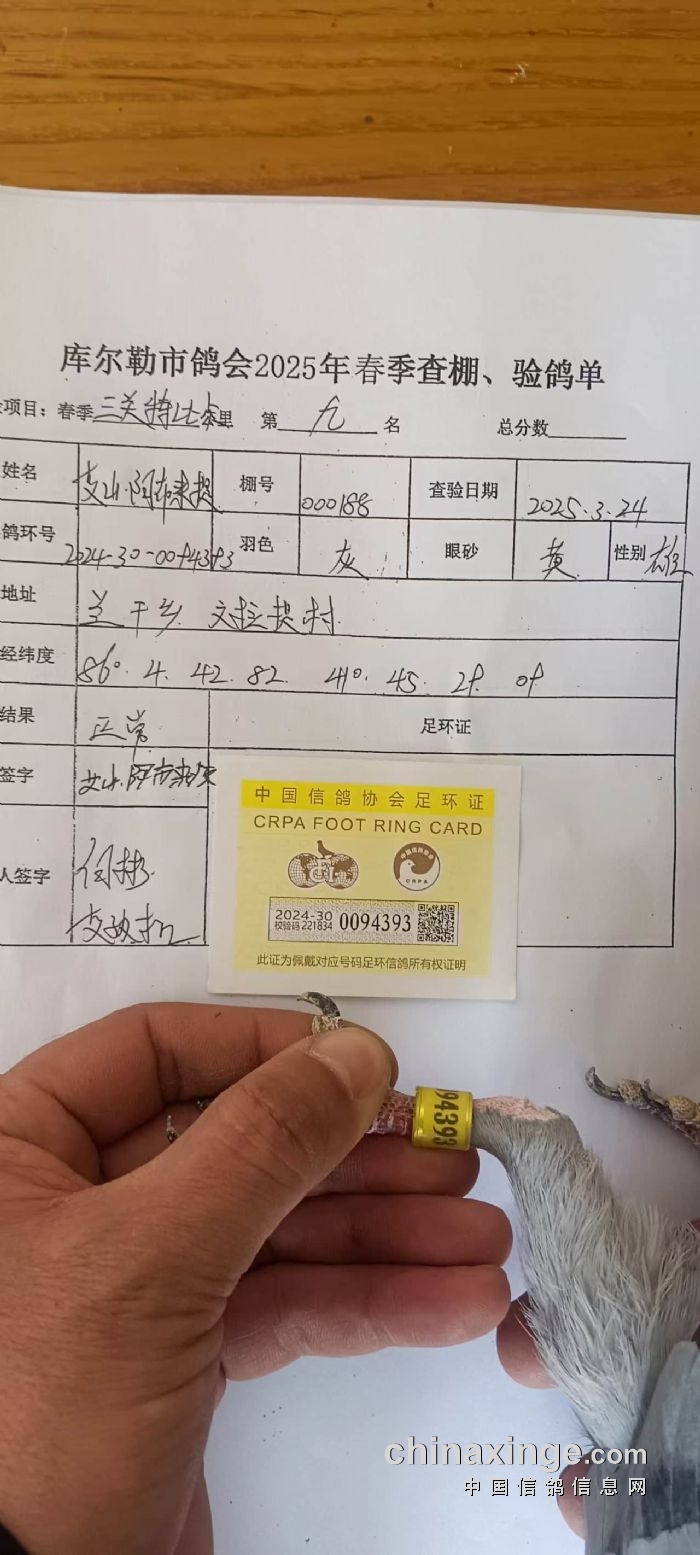 库尔勒市鸽会2025年春季查棚、验鸽单
项目：春季三关特比 第 九 名 总分数
姓名 艾山·阿布来提 棚号 000188 查验日期 2025.3.24
鸽环号 2024-30-0094393 羽色 灰 眼砂 黄 性别 雄
地址 兰干乡
经纬度 86° 4. 42. 82. 41° 45.
结果 正常 足环证
签字
人签字
中国信鸽协会足环证
CRPA FOOT RING CARD
中国信鸽协会
CRPA
2024-30
校验码 221834 0094393
此证为佩戴对应号码足环信鸽所有权证明
94393
chinaxinge.com
中国信鸽信息网